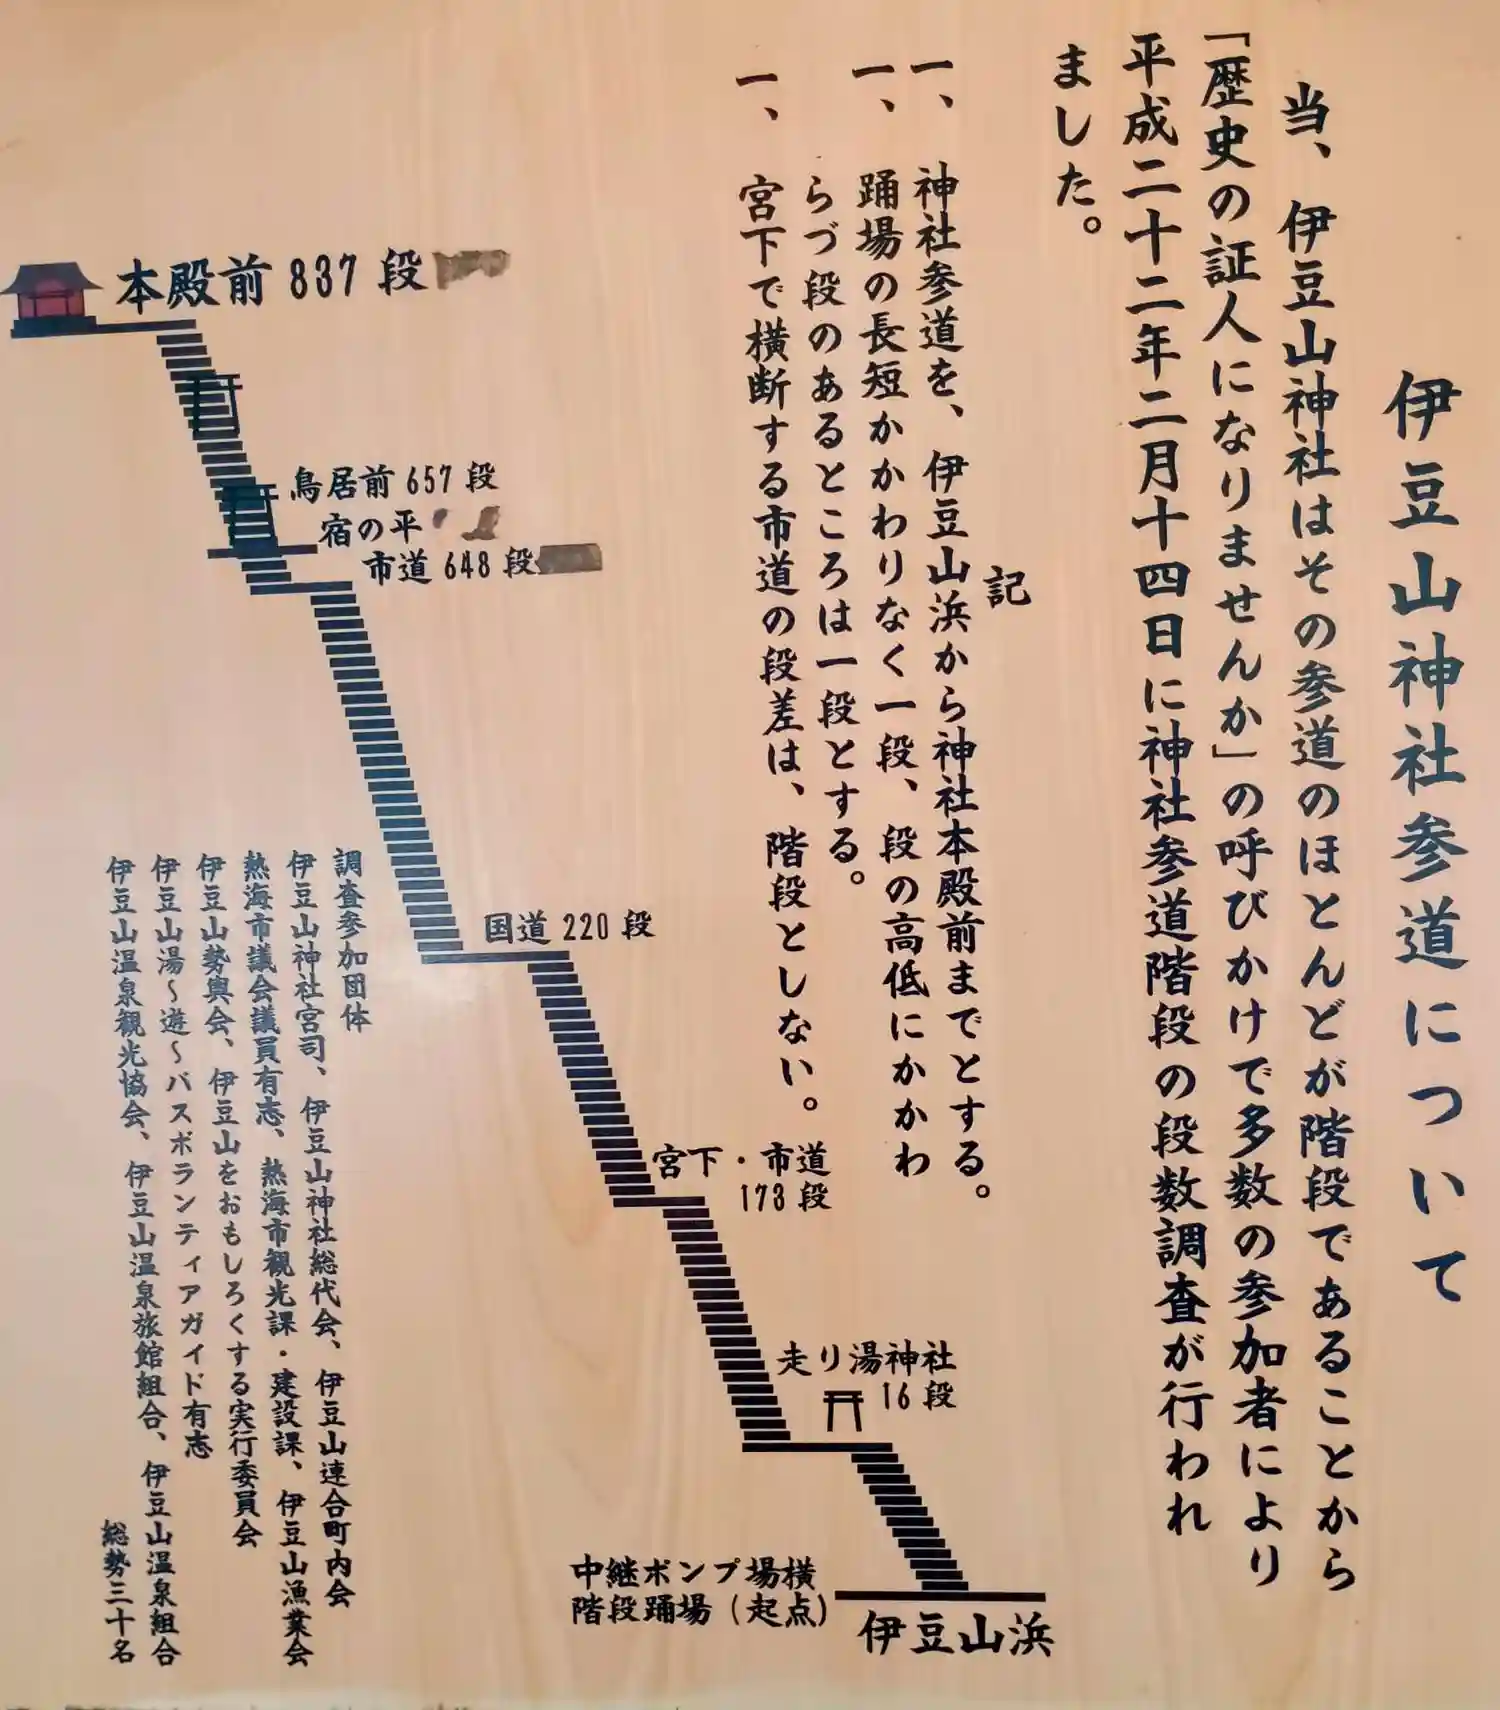 伊豆山神社参道について
当、伊豆山神社はその参道のほとんどが階段であることから
「歴史の証人になりませんか」の呼びかけで多数の参加者により
平成二十二年二月十四日に神社参道階段の段数調査が行われ
ました。
記
一、神社参道を、伊豆山浜から神社本殿前までとする。
一、踊場の長短かかわりなく一段、段の高低にかかわ
らづ段のあるところは一段とする。
一、宮下で横断する市道の段差は、階段としない。
本殿前 837 段
鳥居前 657 段
宿の平
市道 648 段
国道 220 段
宮下・市道
173 段
走り湯神社
16 段
中継ポンプ場横
階段踊場(起点)
伊豆山浜
調査参加団体
伊豆山神社宮司、伊豆山神社総代会、伊豆山連合町内会
熱海市議会議員有志、熱海市観光課・建設課、伊豆山漁業会
伊豆山勢輿会、伊豆山をおもしろくする実行委員会
伊豆山湯~遊~バスボランティアガイド有志
伊豆山温泉観光協会、伊豆山温泉旅館組合、伊豆山温泉組合
総勢三十名